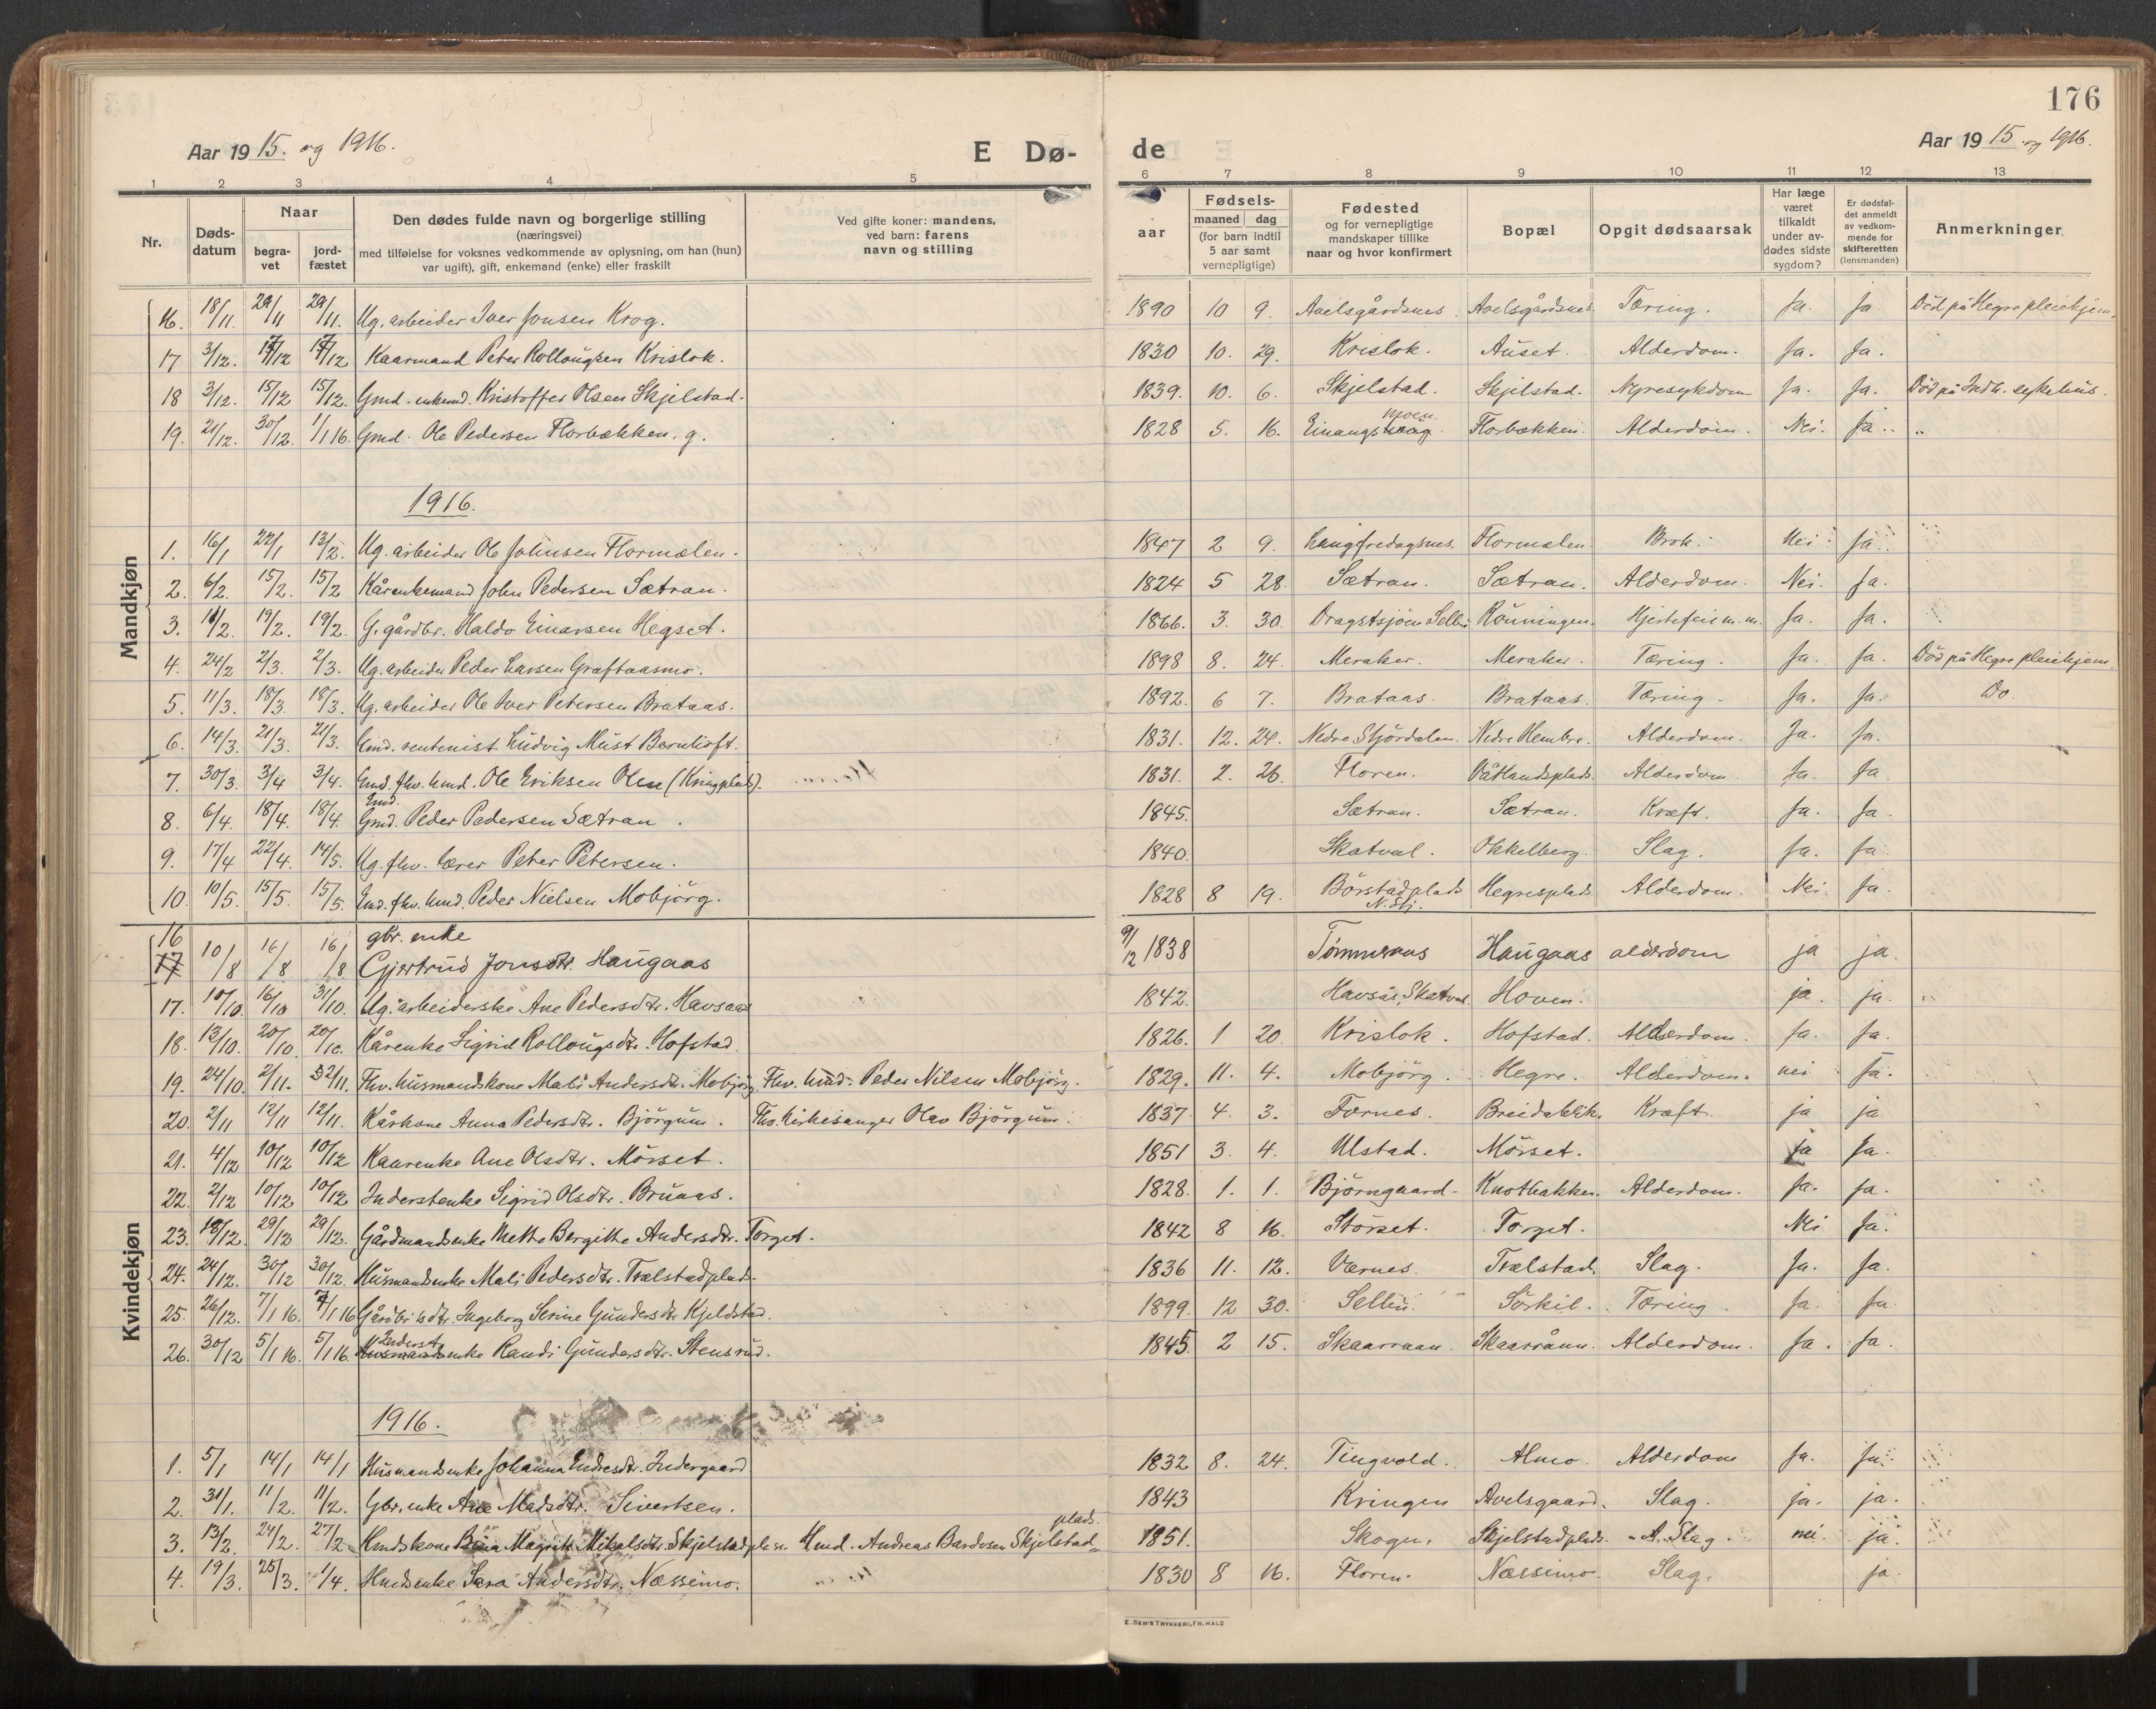 176
Aar 19 15. og 1916. E Dø- de Aar 19 15 og 1916.
1 2 3 4 5 6 7 8 9 10 11 12 13
Nr. Døds-datum Naar begra-vet jord-fæstet Den dødes fulde navn og borgerlige stilling (næringsvei) med tilføielse for voksnes vedkommende av oplysning, om han (hun) var ugift), gift, enkemand (enke) eller fraskilt Ved gifte koner: mandens, ved barn: farens navn og stilling aar Fødsels- maaned dag (for barn indtil 5 aar samt vernepligtige) Fødested og for vernepligtige mandskaper tillike naar og hvor konfirmert Bopæl Opgit dødsaarsak Har læge været tilkaldt under av-dødes sidste sygdom? Er dødsfal-det anmeldt av vedkom-mende for skifteretten (lensmanden) Anmerkninger
Mandkjøn
16. 18/11. 29/11 29/11. Ug. arbeider Iver Jonsen Krog. 1890 10 9. Avelsgårdsnes. Avelsgårdsnes. Tæring. Ja. Ja Död på Hegre pleiehjem.
17 3/12. 17/12 17/12 Kaarmand Peter Rollougsen Krislok. 1830 10. 29. Krislok. Auset. Alderdom. Ja. Ja.
18 3/12. 15/12 15/12. Gmd. enkemd. Kristoffer Olsen Skjelstad. 1839. 10. 6. Skjelstad. Skjelstad. Nyresykdom Ja. Ja. Död på Indh. sykehus.
19. 21/12. 30/12. 1/1 16. Gmd. Ole Pedersen Florbækken. g. 1828 5. 16. Einangsmoen Florbækken. Alderdom. Nei. Ja.
1916.
1. 16/1 22/1 13/2. Ug. arbeider Ole Johnsen Flormælen. 1847 2 9. Langfredagsnes. Flormælen Brok. Nei Ja.
2. 6/2. 15/2. 15/2 Kårenkemand John Pedersen Sætran. 1824 5 28. Sætran. Sætran. Alderdom. Nei. Ja.
3. 11/2. 19/2. 19/2. G. gårdbr. Haldo Einarsen Hegset. 1866. 3. 30. Dragstsjöen Selbu Rönningen. Hjertefeil m.m. Ja. Ja.
4. 24/2 2/3. 2/3. Ug. arbeider Peder Larsen Graftaasmo. 1898 8. 24. Meraker. Meraker. Tæring. Ja. Ja. Död på Hegre pleiehjem.
5. 11/3. 18/3. 18/3. Ug. arbeider Ole Iver Petersen Brataas. 1892. 6 7. Brataas. Brataas. Tæring. Ja. Ja. Do.
6. 14/3. 21/3. 21/3. Emd. rentenist Ludvig Must Bernhoft. 1831. 12. 24. Nedre Stjördalen. Nedre Hembre. Alderdom. Ja. Ja.
7. 30/3. 3/4 3/4. Emd. fhv. hmd. Ole Eriksen Olsen (Kringplads). 1831. 2. 26. Floren. Alderdom. Ja. Ja
8. 6/4. 18/4. 18/4. Emd. Gmd. Peder Pedersen Sætran. 1845. Sætran. Sætran. Kræft. Ja. Ja.
9. 17/4 22/4. 14/5. Ug. fhv. lærer Peter Petersen. 1840. Skatval. Okkelberg. Slag. Ja. Ja.
10. 10/5. 15/5. 15/5. Emd. fhv. hmd. Peder Nielsen Mobjörg. 1828 8 19. Börstadplads N. Stj. Hegresplads Alderdom. Nei. Ja.
Kvindekjøn
16 17 10/8 16/8 16/8 gbr. enke Gjertrud Jonsdtr. Haugaas 9/12 1838 Tømmeraas Haugaas alderdom ja ja.
17. 10/10. 16/10 31/10. Ug. arbeiderske Ane Pedersdtr. Havsaas 1842. Havsås, Skatval. Hoven. ja. ja.
18. 13/10. 20/10. 20/10. Kårenke Sigrid Rollougsdtr. Hofstad. 1826. 1 20. Krislok. Hofstad. Alderdom. Ja. Ja.
19. 24/10. 2/11. 2/11. Fhv. husmandskone Mali Andersdtr. Mobjörg Fhv. hmd. Peder Nilsen Mobjörg. 1829. 11. 4. Mobjörg. Hegre. Alderdom. nei Ja.
20. 2/11 12/11 12/11. Kårkone Anna Pedersdtr. Björgum. Fhv. kirkesanger Olav Björgum. 1837. 4. 3. Fornes. Breidablik. Kræft. ja ja
21. 4/12 10/12 10/12 Kaarenke Ane Olsdtr. Mörset. 1851 3. 4. Ulstad. Mörset. ja Ja.
22. 2/12 10/12 10/12 Inderstenke Sigrid Olsdtr. Bruaas. 1828. 1. 1. Björngaard. Knotbakken. Alderdom. Ja. Ja.
23. 18/12. 29/12 29/12. Gårdmandsenke Mette Bergitte Andersdtr. Torget. 1842 8 16. Störset. Torget. Nei Ja.
24. 24/12. 30/12 30/12. Husmandsenke Mali Pedersdtr. Trælstadplads. 1836 11. 12. Værnes. Trælstad. Slag. Ja. Ja.
25. 26/12. 7/1 16. 7/1 16 Gårdbr's dtr. Ingeborg Serine Gundersdtr. Kjeldstad. 1899. 12 30. Selbu. Sörkil. Tæring. Ja. Ja.
26. 30/12 5/1 16. 5/1 16. Inderst Husmandsenke Randi Gundersdtr. Stensrud. 1845. 2 15. Skaarraan. Skaarrånn. Alderdom. Ja. Ja.
1916.
1. 5/1 14/1 14/1 Husmandsenke Johanna Endresdtr. Indergaard 1832 8. 24. Tingvold. Almo. Alderdom Ja. Ja.
2. 31/1. 11/2. 11/2. Gbr. enke Ane Madsdtr. Sivertsen. 1843 Kringen Avelsgaard. Slag. ja. ja.
3. 13/2. 24/2. 27/2 Hmdskone Magrete Mikalsdtr. Skjelstadplass. Hmd. Andreas Bardosen Skjelstadplads. 1851. Skogn. Skjelstadplads. Slag. nei. ja.
4. 19/3. 25/3. 1/4. Hmdsenke Sara Andersdtr. Næssimo. 1830 8 16. Floren. Næssimo. Slag. ja.
E. SEM'S TRYKKERI, FR. HALD